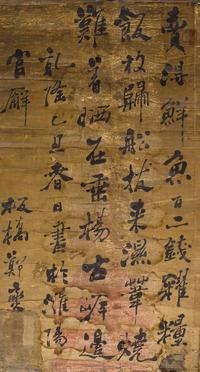 賣得鮮魚百二錢糴糧
飯放歸船拔来濕葦燒
難著晒在垂楊古岸邊
乾隆己丑春日書於濰陽
官廨 板橋鄭燮